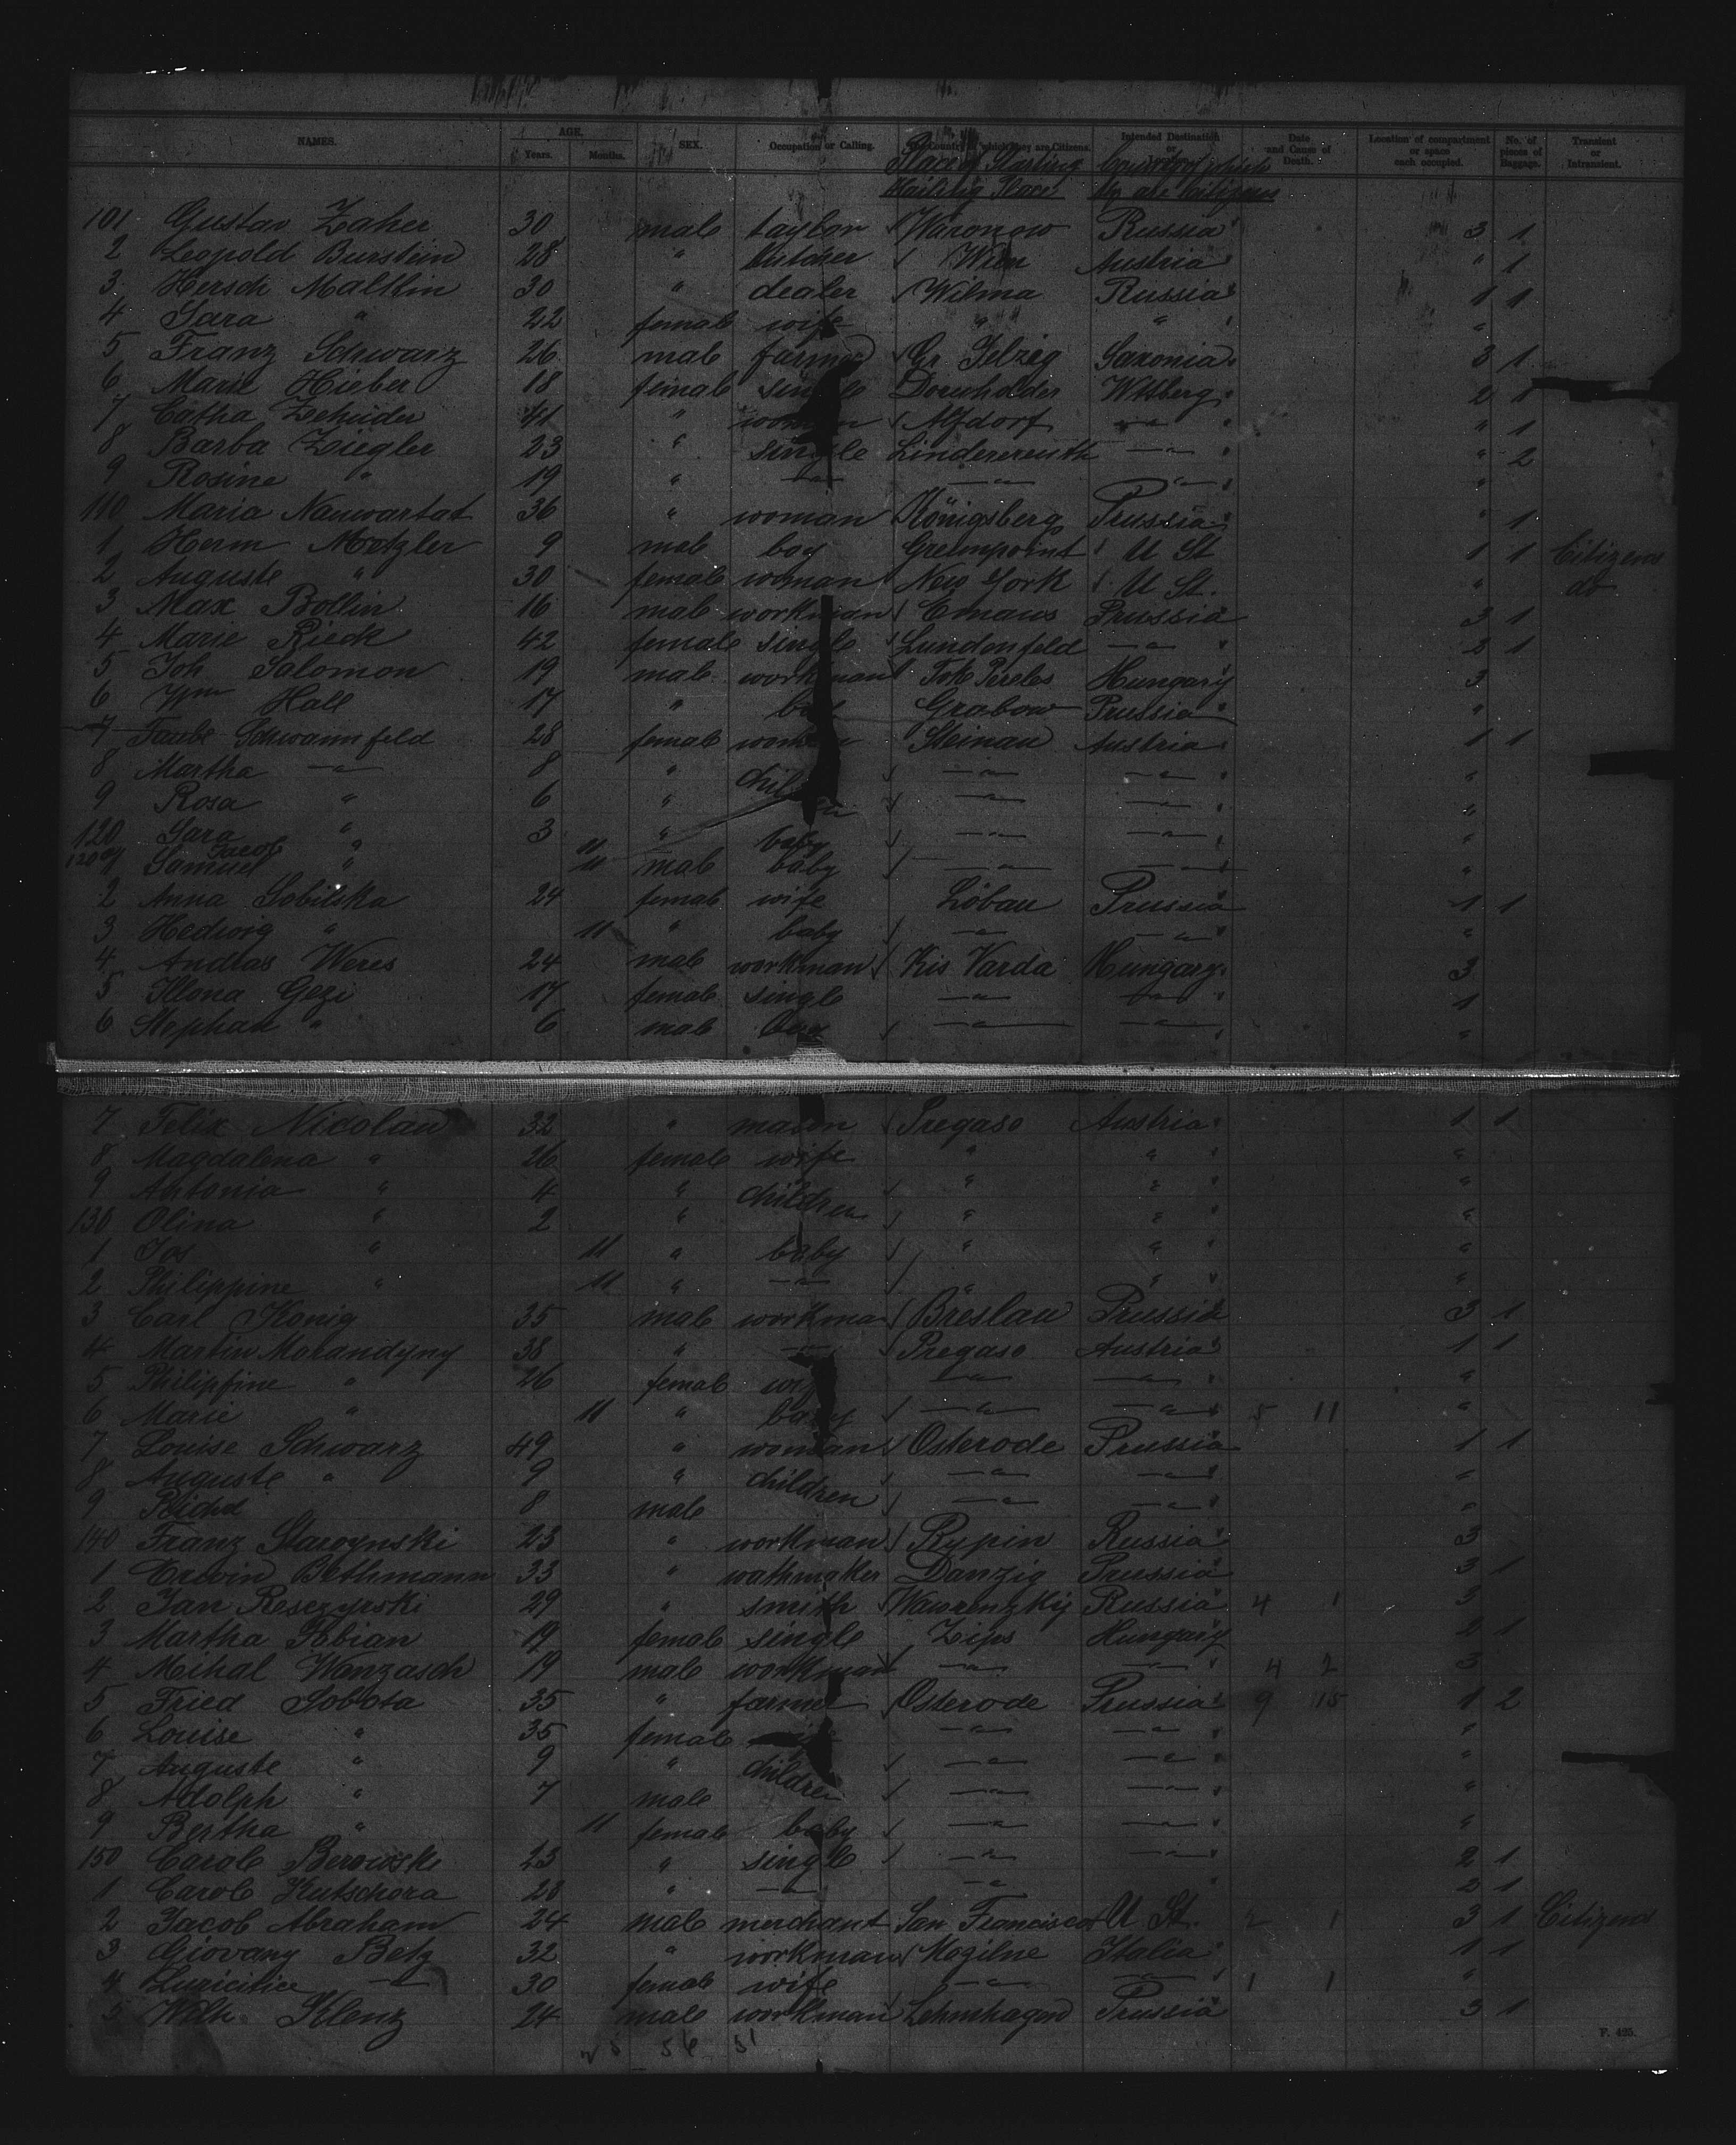 NAMES. AGE. Years. Months. SEX. Occupation or Calling. The Country of which they are Citizens. Intended Destination or Date and Cause of Death. Location of compartment or space each occupied. No. of pieces of Baggage. Transient or Intransient.
Place of Starting Country of which
Mailing Place they are Citizens
101 Gustav Zaher 30 male taylor Waronow Russia 3 1
2 Leopold Burstein 28 " butcher Wien Austria " 1
3 Hersch Maltlin 30 " dealer Wilma Russia 1 1
4 Sara " 22 female wife " " "
5 Franz Schwarz 26 male farmer Gr. Jelzig Saxonia 3 1
6 Marie Hieber 18 female single Dornhalder Wttberg. 2 1
7 Catha Zehnder 41 " woman Alfdorf — " — " 1
8 Barba Ziegler 23 " single Lindenreuth — " — " 2
9 Rosine " 19 " — " — — " — — " — "
110 Maria Nauwartat 36 " woman Königsberg Prussia " 1
1 Herm Metzler 9 male boy Greenpoint U St 1 1 Citizens
2 Auguste " 30 female woman New York U St. " do
3 Max Bollin 16 male workman Emaus Prussia 3 1
4 Marie Rieck 42 female single Lundenfeld — " — 2 1
5 Joh Salomon 19 male workman Tok Pereles Hungary 3
6 Wm Hall 17 " Grabow Prussia "
7 Taube Schwannfeld 28 female woman Steinau Austria 1 1
8 Martha — " — 8 " children — " — — " — "
9 Rosa " 6 " — " — — " — "
120 Sara " 3 " baby — " — — " — "
120a/1 Jacob Samuel " 11 11 male baby — " — — " — "
2 Anna Sobilska 24 female wife Löbau Prussia 1 1
3 Hedwig " 11 " baby — " — — " — "
4 Andras Weres 24 male workman Kis Varda Hungary 3
5 Illona Gezi 17 female single — " — — " — 1
6 Stephan " 6 male boy — " — — " — "
7 Felix Nicolau 32 " mason Pregaso Austria 1 1
8 Magdalena " 26 female wife " " "
9 Antonia " 4 " children " " "
130 Olina " 2 " " " "
1 Jos " 11 " baby " " "
2 Philippine " 11 " — " — " " "
3 Carl König 35 male workman Breslau Prussia 3 1
4 Martin Morandyny 38 " — " — Pregaso Austria 1 1
5 Philippine " 26 female wife — " — — " — "
6 Marie " 11 " baby — " — — " — 5 11 "
7 Louise Schwarz 49 " woman Osterode Prussia 1 1
8 Auguste " 9 " children — " — — " — "
9 Richd 8 male — " — — " — "
140 Franz Starzynski 23 " workman Rypin Russia 3
1 Erwin Bethmann 33 " wathmaker Danzig Prussia 3 1
2 Jan Resczynski 29 " smith Wawrenzkij Russia 4 1 3
3 Martha Fabian 19 female single Zips Hungary 2 1
4 Mihal Wanzasch 19 male workman — " — — " — 4 2 3
5 Fried Sobota 35 " farmer Osterode Prussia 9 15 1 2
6 Louise " 35 female — " — — " — "
7 Auguste " 9 " children — " — — " — "
8 Adolph " 7 male — " — — " — "
9 Bertha " 11 female baby — " — — " — "
150 Carole Berowski 23 " single — " — — " — 2 1
1 Carole Kutschera 28 " — " — — " — 2 1
2 Jacob Abraham 24 male merchant San Francisco U St. 2 1 3 1 Citizens
3 Giovany Betz 32 " workman Mogilne Italia 1 1
4 — " — 30 female wife — " — — " — 1 1 "
5 Wilh Klenz 24 male workman Lehmhagen Prussia 3 1
56 51
F. 425.